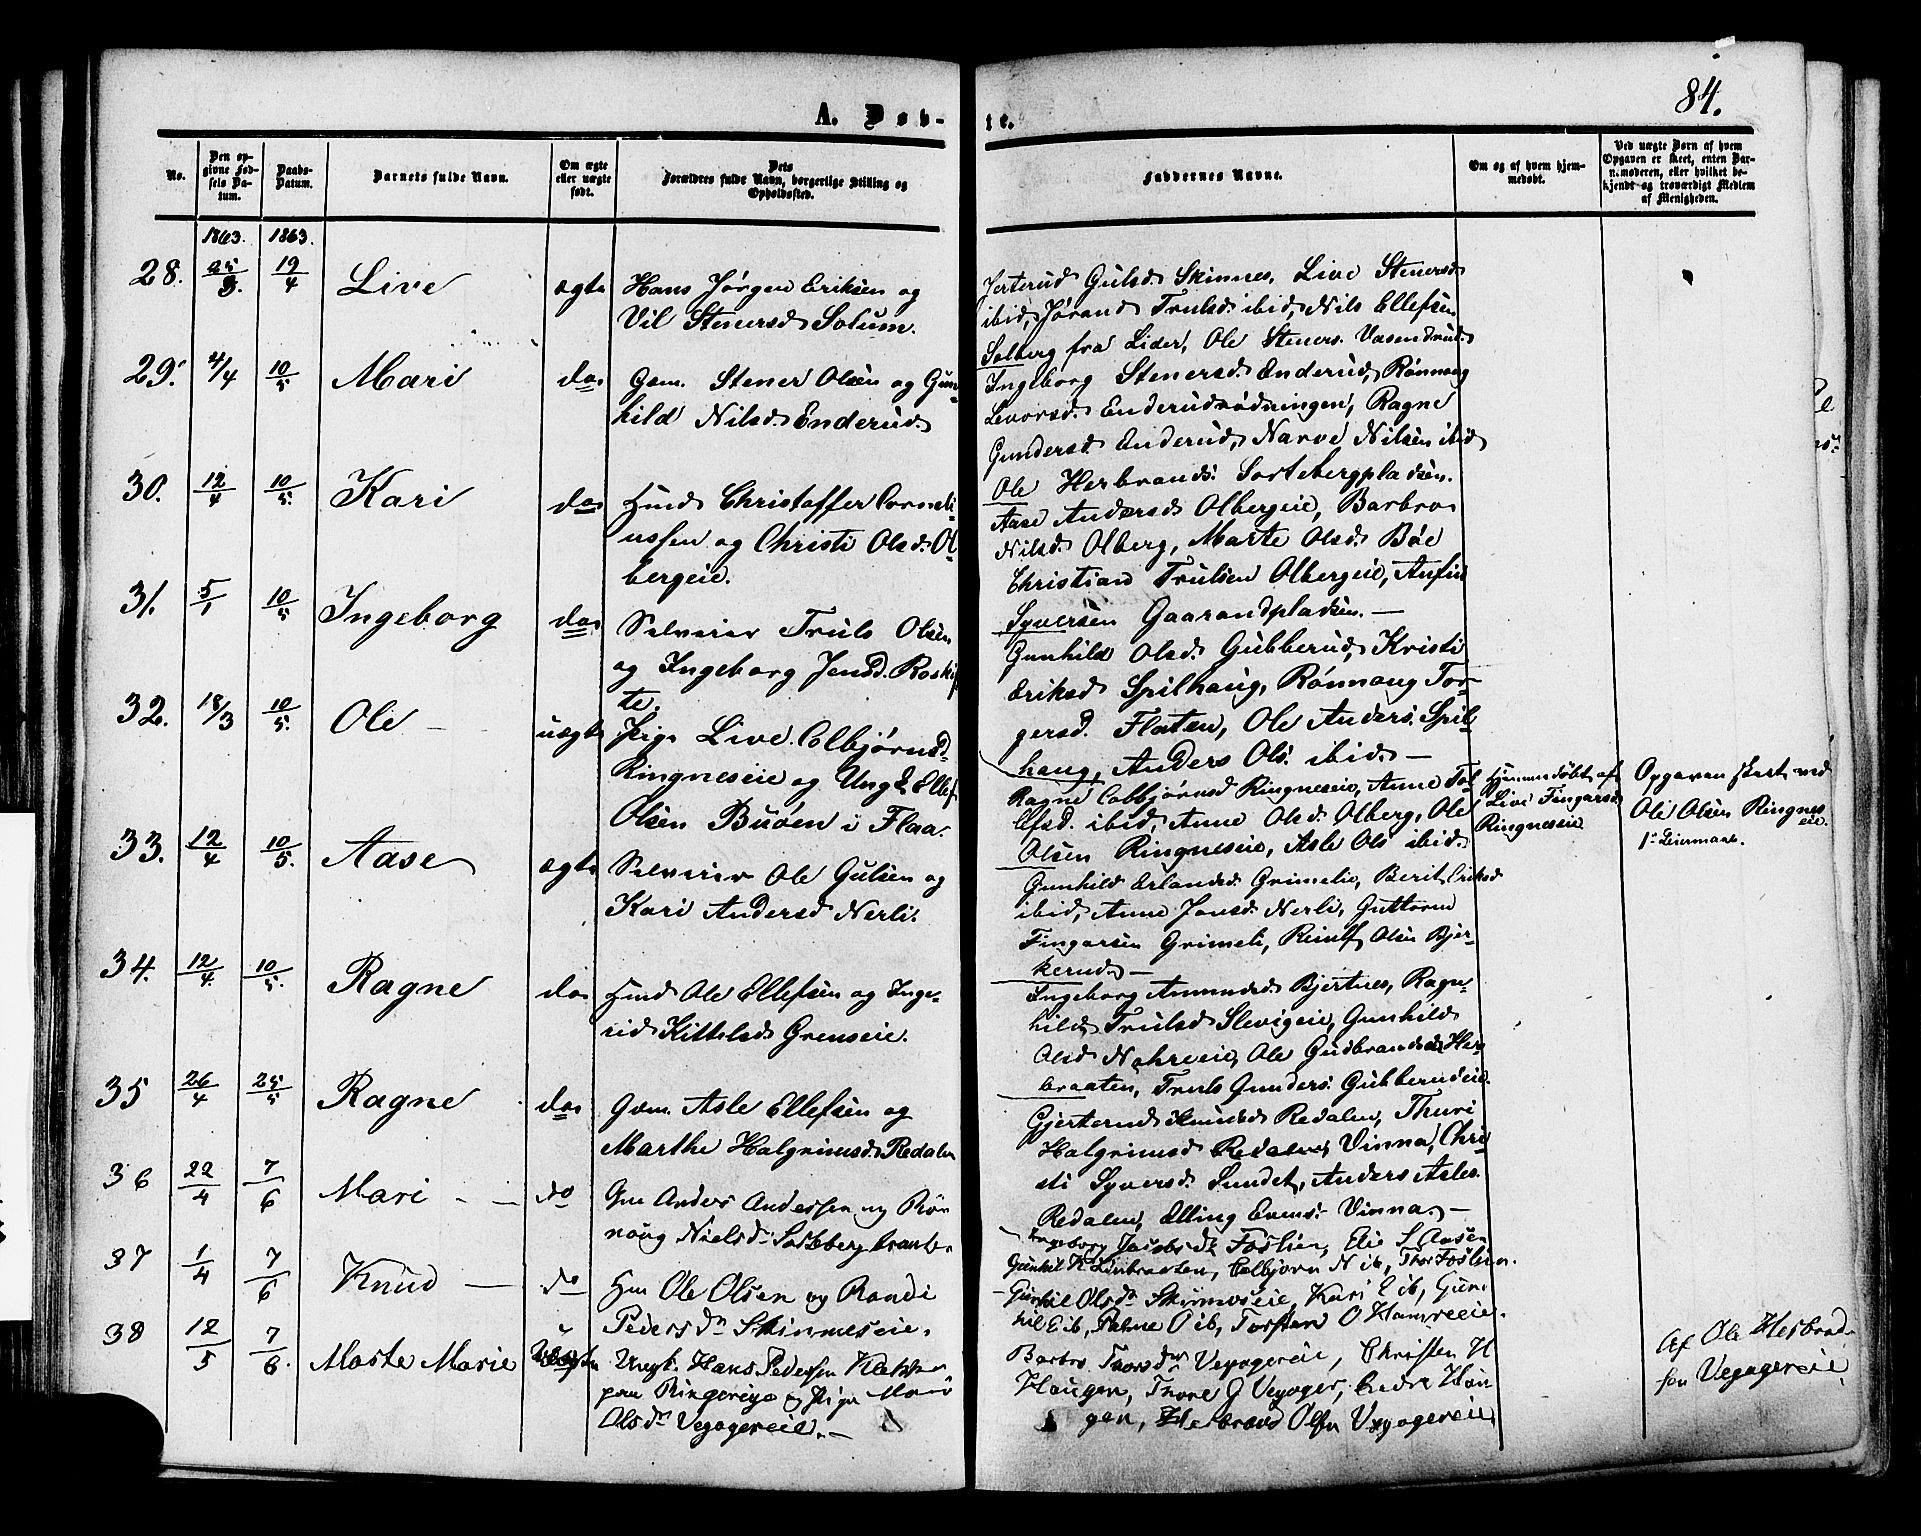 84.
A. Døb-
te.
No.
Den op-
givne Fød-
sels Da-
tum.
Daabs-
Datum.
Barnets fulde Navn.
Om ægte
eller uægte
født.
Dets
Forældres fulde Navn, borgerlige Stilling og
Opholdssted.
Faddernes Navne.
Om og af hvem hjem-
medøbt.
Ved uægte Børn af hvem
Opgaven er skeet, enten Bar-
nemoderen, eller hvilket be-
kjendt og troværdigt Medlem
af Menigheden.
1863. 1863.
28. 25/3. 19/4 Live ægte Hans Jørgen Eriksen og
Vil Stenersd Solum.
Jerterud Gulsd. Skinnes, Live Stenersd
ibid, Jørand Trulsd. ibid, Nils Ellefsen
Solberg fra Lider, Ole Steners. Vasendrud.
29. 4/4 10/5 Mari do Gom. Stener Olsen og Gun-
hild Nilsd. Enderud.
Ingeborg Stenersd. Enderud, Rønnaug
Levorsd. Enderudrødningen, Ragne
Gundersd. Enderud, Narve Nilsen ibid
30. 12/4 10/5. Kari do Husmd Christoffer Corneli-
ussen og Christi Olsd. Ol-
bergeie.
Ole Herbrands. Sortebergpladsen.
Aase Andersd. Olbergeie, Barbro
Nilsd. Olberg, Marte Olsd. Bøe
Christian Trulsen Olbergeie, Anfin
Syversen Gaarandpladsen.—
31. 5/1 10/5 Ingeborg do Selveier Truls Olsen
og Ingeborg Jensd. Roskif-
te.
Gunhild Olsd. Gubberud, Kristi
Eriksd Spilhaug, Rønnaug Tor-
gersd. Flaten, Ole Anders. Spil-
haug, Anders Ols. ibid.—
32. 18/3 10/5. Ole — uægte Pige Live Colbjørnsd.
Ringneseie og Ungk. Ellef
Olsen Buøen i Flaa.
Ragne Colbjørnsd Ringneseie, Anne Tol-
lefsd. ibid, Anne Olsd. Olberg, Ole
Olsen Ringneseie, Asle Ols ibid.
Hjemmedøbt af
Live Fingarsd
Ringneseie
Opgaven skeet ved
Ole Olsen Ringnes
eie.
1ste Leiermaal.
33. 12/4 10/5. Aase ægte Selveier Ole Gulsen og
Kari Andersd Nerli.
Gunhild Erlandsd. Grimelie, Berit Eriksd
ibid, Anne Jonsd. Nerli, Guttorm
Fingarsen Grimeli, Olsen Bjer-
kerud.—
34. 12/4. 10/5. Ragne do Husmd Ole Ellefsen og Inge-
rid Kittelsd Grenseie.
Ingeborg Amundsd. Bjertnes, Ragn-
hild Trulsd Slevigeie, Gunhild
Olsd Nahreeie, Ole Gudbrandsen Her-
braaten, Truls Gunders. Gubberudeie.
35 26/4 25/5 Ragne do Gom. Asle Ellefsen og
Marthe Halgrimsd. Redalen
Gjerterud Redalen, Thuri
Halgrimsd Redalen Vinna, Chri-
sti Syversd. Sundet, Anders Asles.
Redalen, Elling Evens. Vinna.—
36 22/4 7/6 Mari — — do Gm Anders Andersen og Røn-
naug Nielsd. Sorteberg
Ingeborg Jacobsd. Foslien, Elie S Aasen
Gunhil K Linbraaten, Colbjørn N ib, Thor Foslien.
37 1/4 7/6 Knud — do Hm Ole Olsen og Randi
Pedersdr. Skinneseie.
Gunhil Olsdr. Skinneseie, Kari E ib, Gun-
hil E ib, Palme O ib, Torsten O Hamreeie.
38 12/5 7/6. Marte Marie Uægte Ungk. Hans Pedersen
paa Ringerige og Pige Mari
Olsdr Vegagereie.—
Barbro Thorsdr Vegagereie, Christen H
Haugen, Thore G Vegager, Endre Hau-
gen, Herbrand Olsen Vegagereie
Af Ole Hesbrad-
sen Vegagereie.